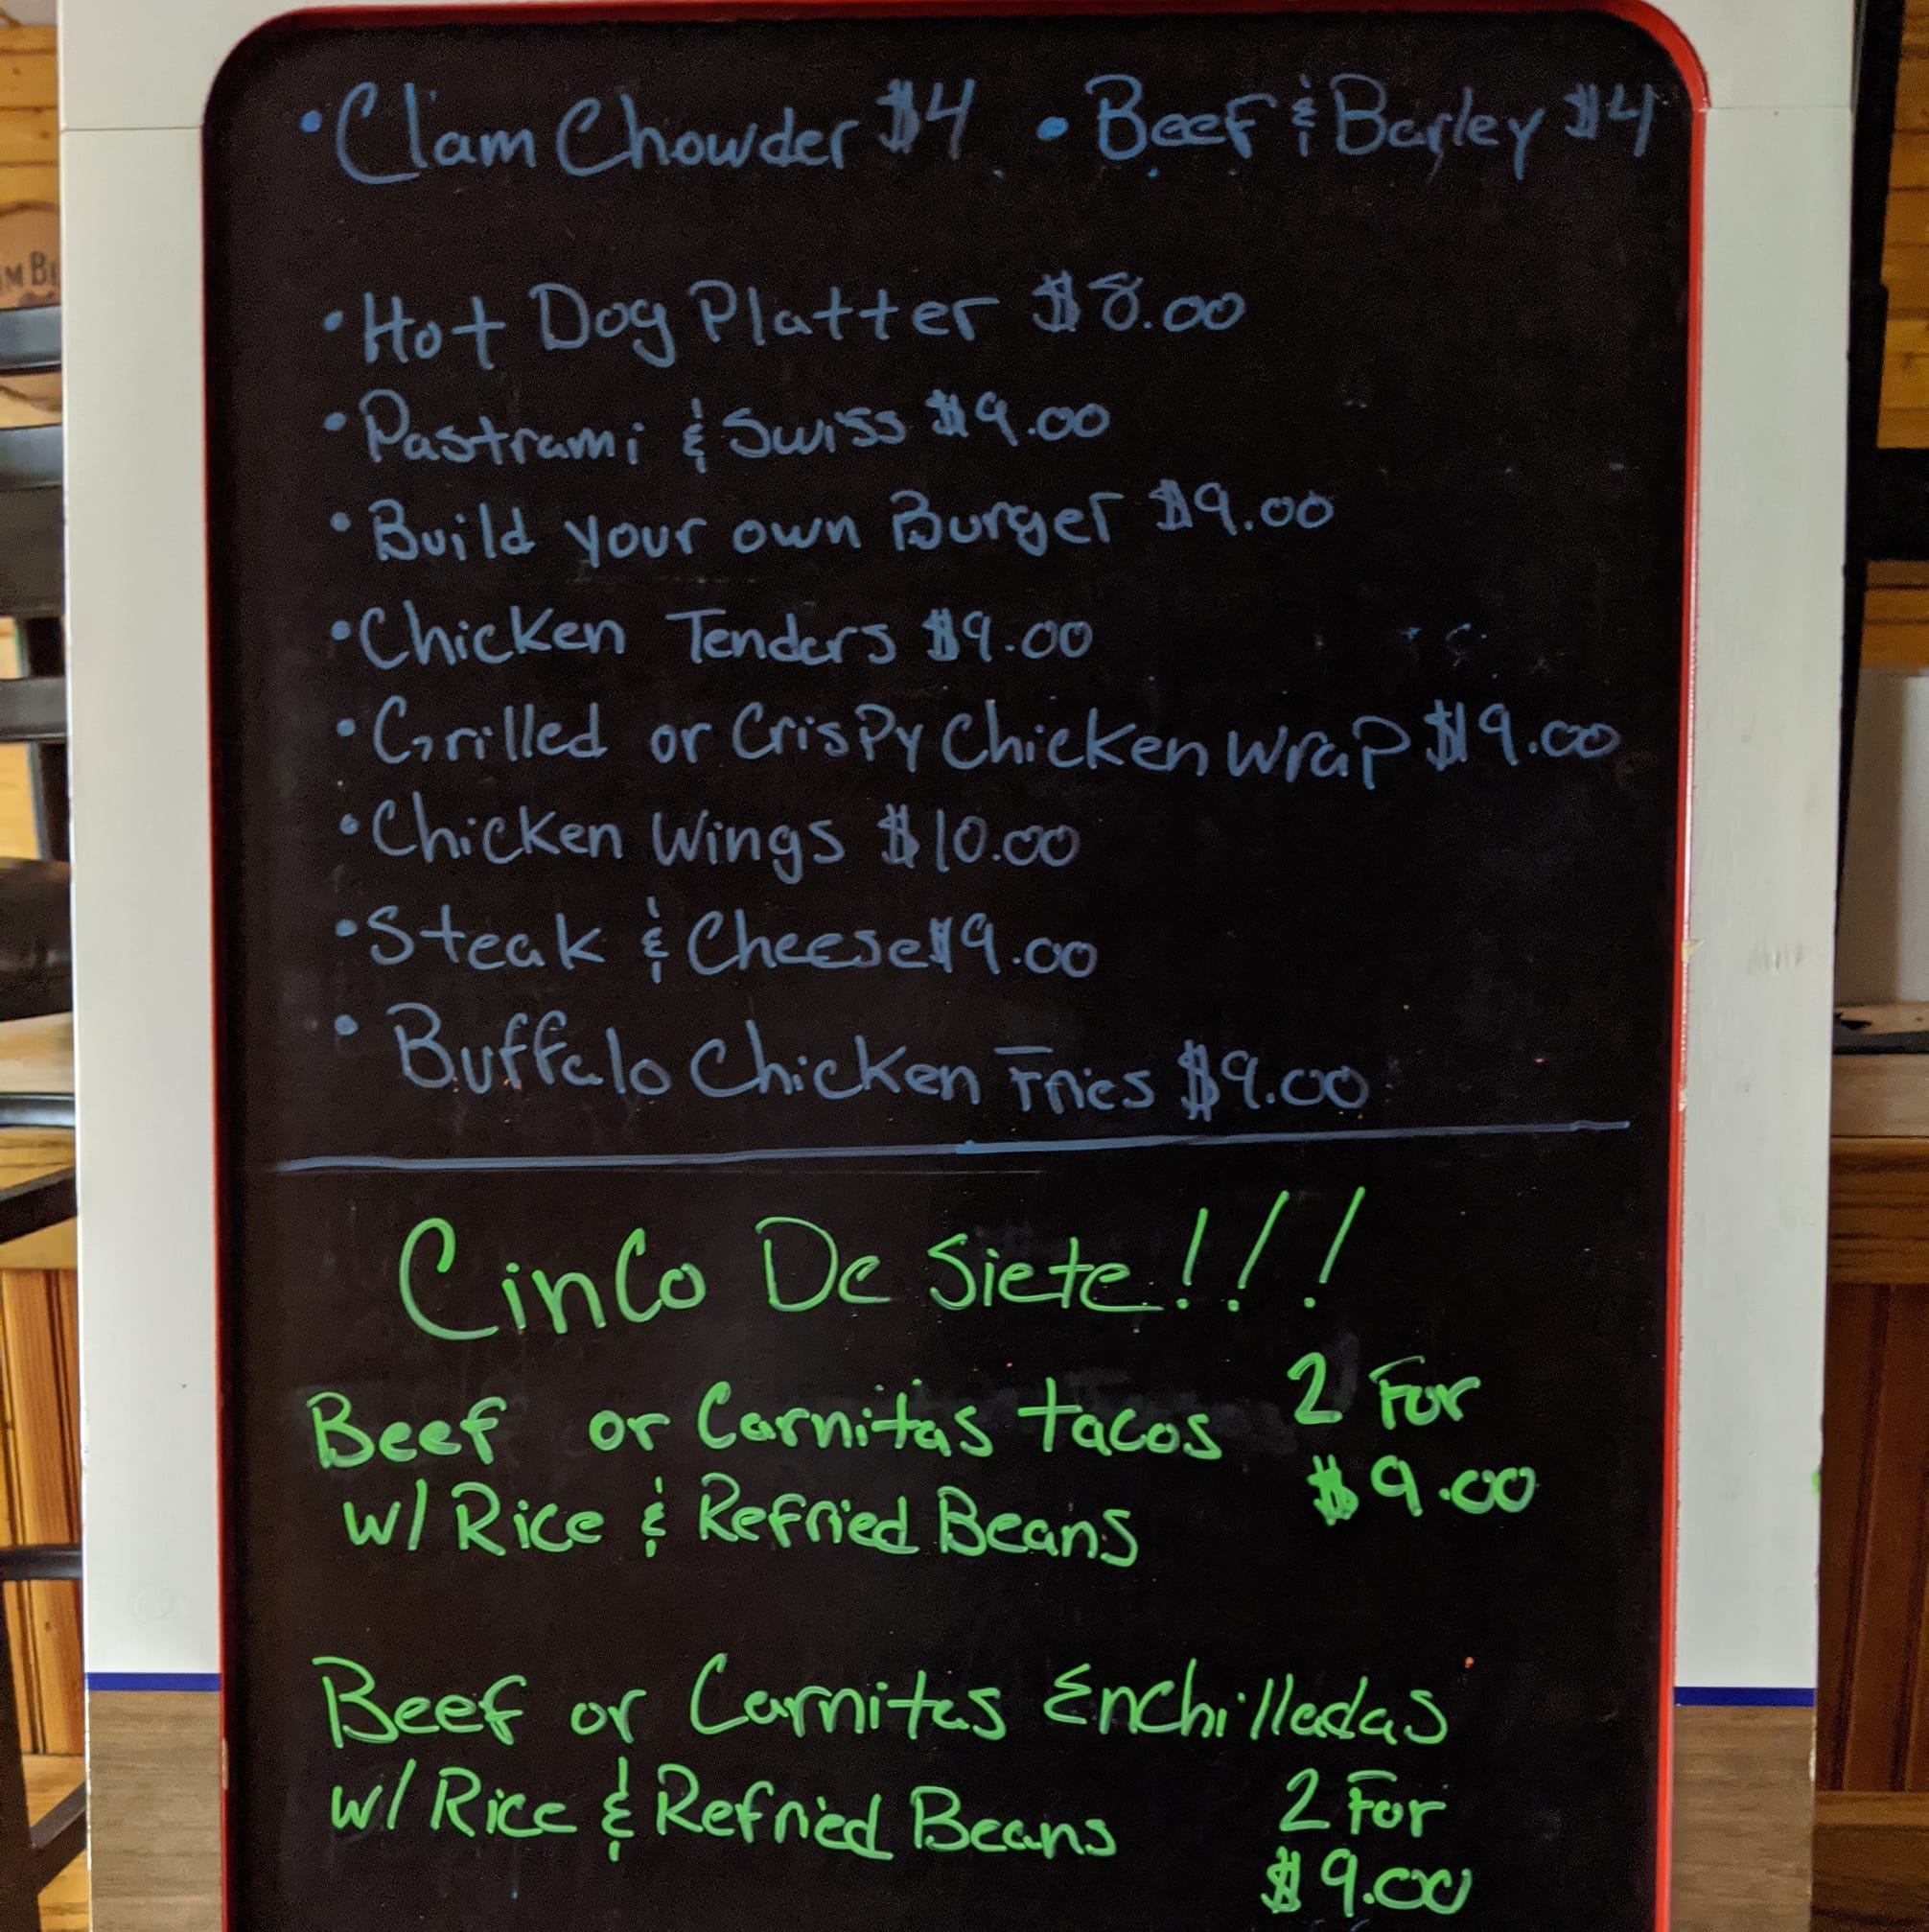 • Clam Chowder $4 • Beef & Barley $4
• Hot Dog Platter $8.00
• Pastrami & Swiss $9.00
• Build your own Burger $9.00
• Chicken Tenders $9.00
• Grilled or Crispy Chicken Wrap $9.00
• Chicken Wings $10.00
• Steak & Cheese $9.00
• Buffalo Chicken Fries $9.00
Cinco De Siete!!!
Beef or Carnitas tacos 2 For
w/ Rice & Refried Beans $9.00
Beef or Carnitas Enchilledas
w/ Rice & Refried Beans 2 For
$9.00